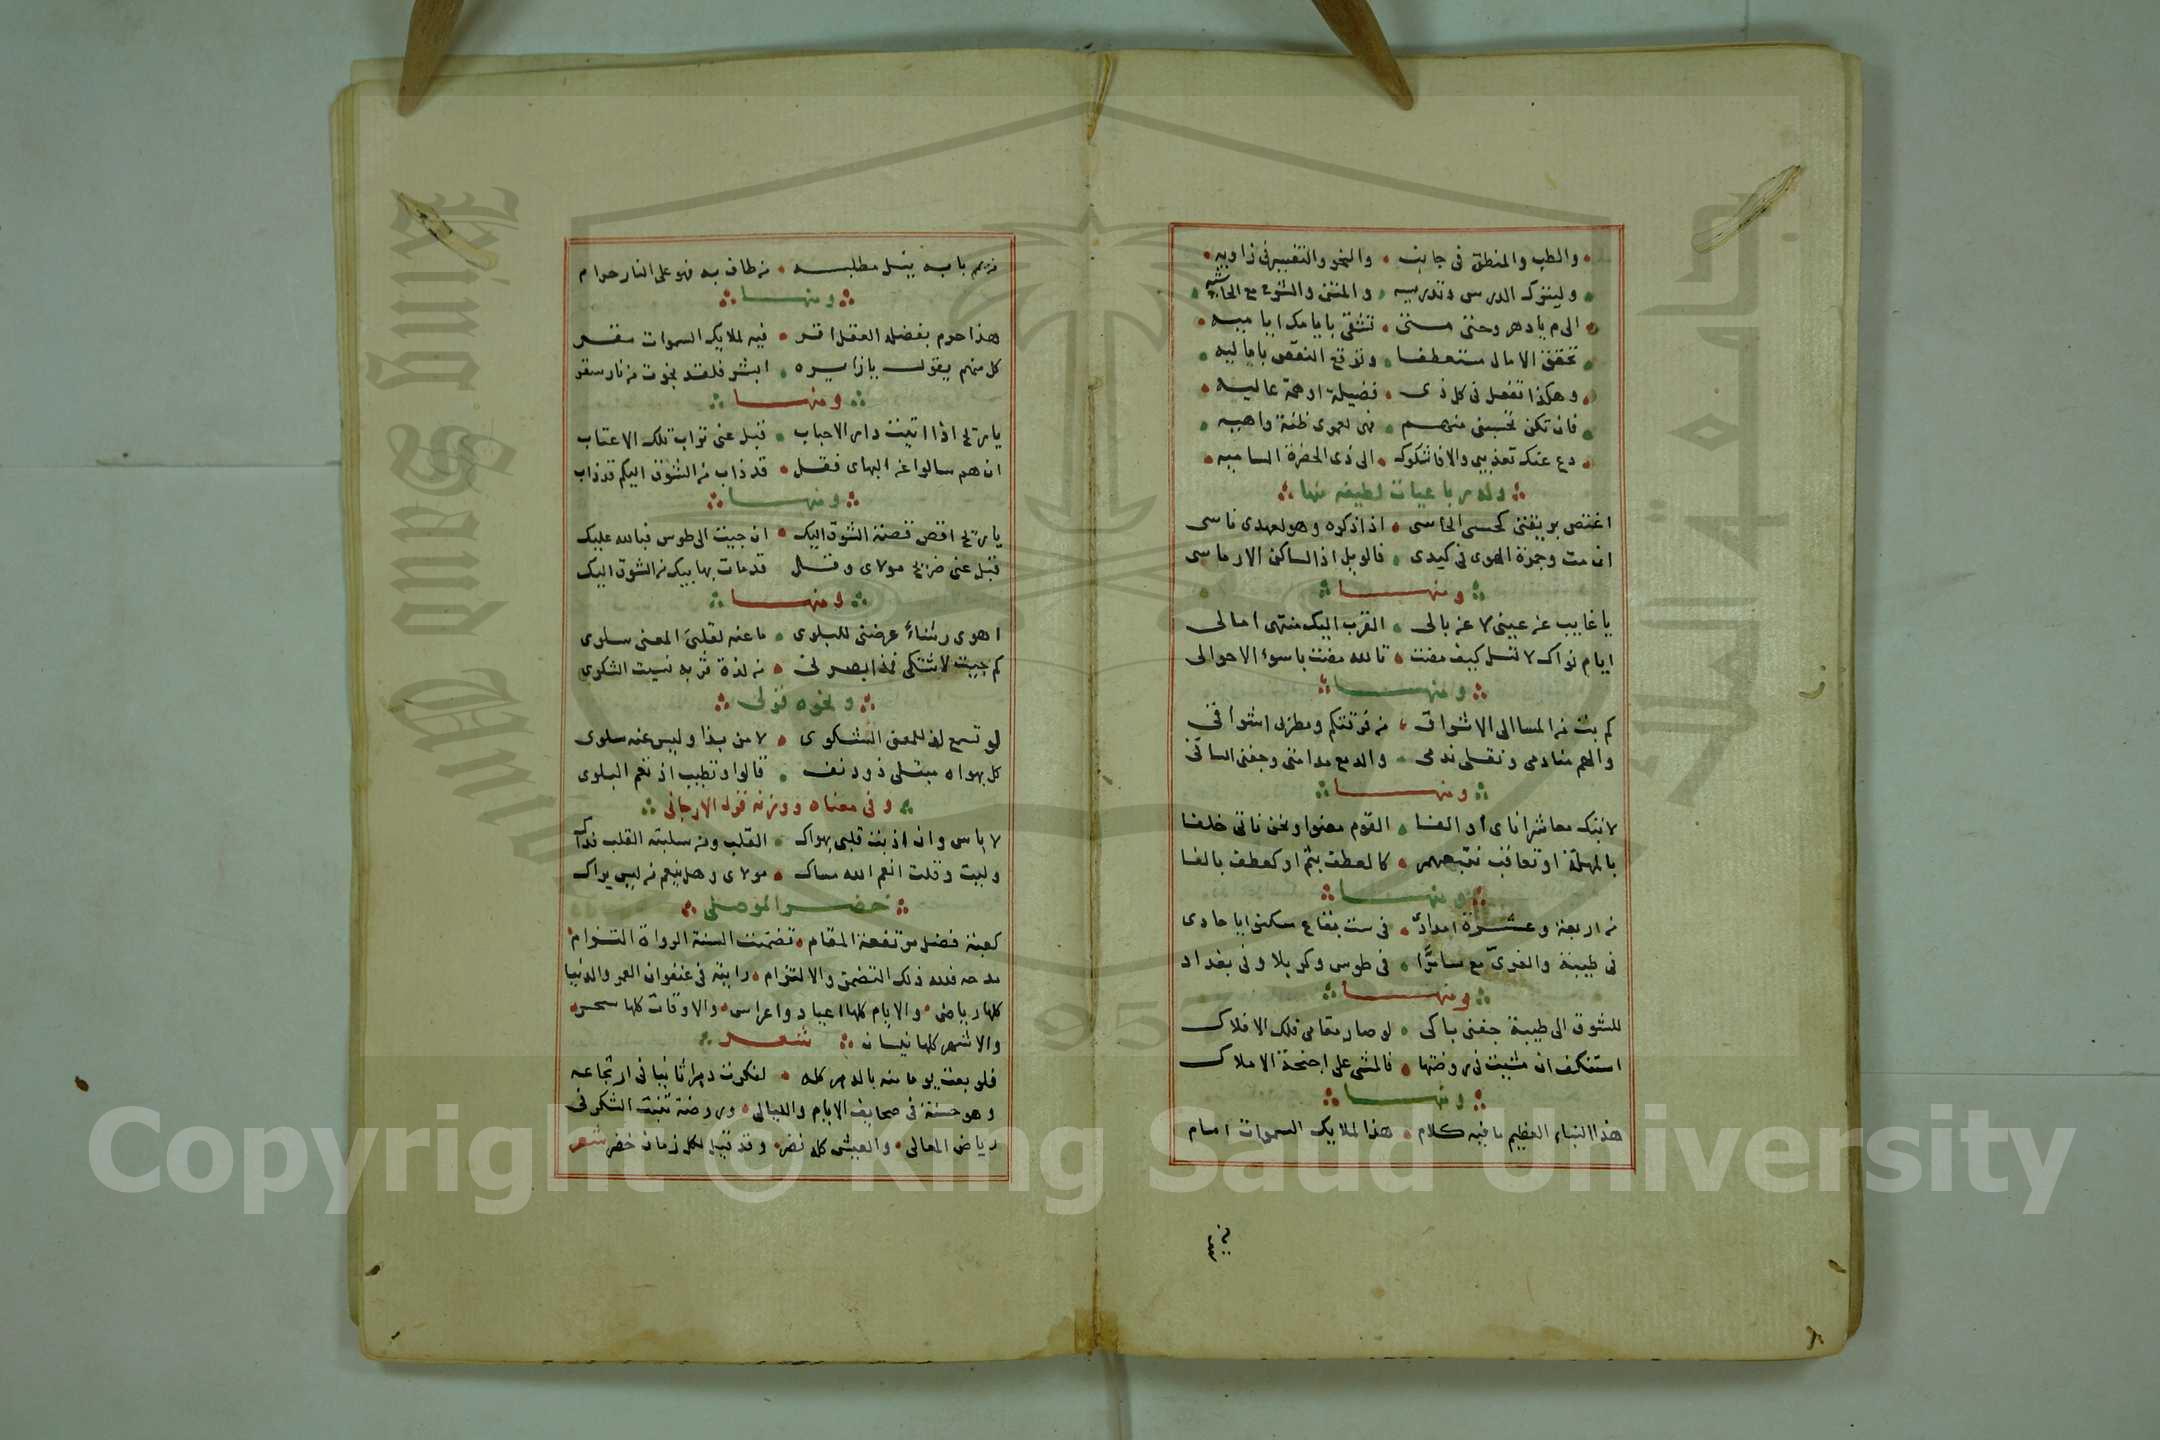 والطب والمنطق في جانب • والنحو والتفسير في زاويه
وليترك الدرس وتدريسه • والمتن والشرح مع الحاشيه
الى م يا دهر وحتى متى • تشقى بايامك ايامیه
تحقق الامال مستعطفا • وتوقع النقص باماليه
وهكذا تفعل في كل ذى • فضيلة او همة عاليه
فان تكن تحسبني منهم • فهى لعمرى ظنة واهيه
دع عنك تعذيبى والا فاشكوك • الى ذى الحضرة الساميه
وله رباعيات لطيفه منها
اغتص بريقتى كحسى الحاسى • اذ اذكره وهو لعهدى ناسى
ان مت وجمرة الهوى فى كبدى • فالويل اذا لساكن الارماسى
ومنهــا
يا غايب عن عينى لا عن بالى • القرب اليك منتهى امالى
ايام نواك لا تسل كيف مضت • تالله مضت باسوء الاحوالى
ومنهــا
كم بت من المسا الى الاشراق • من فرقتكم ومطربى اشواقى
والهم منادمى ونقلى ندمى • والدمع مدامتى وجفنى الساقى
ومنهــا
لا تبك معاشرا نأى او الفا • القوم مضوا ونحن ناتى خلفا
بالمهلة او تعاقب نتبعهم • كالعطف بثم او كعطف بالفا
ومنهــا
من اربعة وعشرة امدادى • فى ست بقاع سكنوا يا حادى
فى طيبة والغرى مع سامرا • فى طوس وكربلا وفى بغداد
ومنهــا
للشوق الى طيبة جفنى باكى • لو صار مقامى فلك الافلاك
استنكف ان مشيت فى روضتها • فالمشى على اجنحة الاملاك
ومنهــا
هذا النباء العظيم ما فيه كلام • هذا لملايك السموات امام
من يمم بابه ينل مطلبه • من طاف به فهو على النار حرام
ومنهــا
هذا حرم بفضله العقل اقر • فيه لملايك السموات مقر
كل منهم يقول يا زايره • ابشر فلقد نجوت من نار سقر
ومنهــا
يا ريح اذا اتيت دار الاحباب • قبل عنى تراب تلك الاعتاب
ان هم سالوا عن البهاى فقل • قد ذاب من الشوق اليكم قد ذاب
ومنهــا
يا ريح اقض قصة الشوق اليك • ان جيت الى طوس فبالله عليك
قبل عنى ضريح مولاى وقل • قد مات بهاييك من الشوق اليك
ومنهــا
اهوى رشاء عرضنى للبلوى • ما عنه لقلبى المعنى سلوى
كم جيت لاشتكى فمذ ابصرنى • من لذة قربه نسيت الشكوى
ونحوه قولى
لو تسمع اذن للمعنى الشكوى • لا من بذا وليس عنه سلوى
كل بهواه مبتلى ذو دنف • قالوا وتطيب اذ تعم البلوى
وفى معناه ووزنه قوله الارجانى
لا باس وان اذبت قلبى بهواك • القلب ومن سلبته القلب فداك
وليت وقلت انعم الله مساك • مولاى وهل ينعم من ليس يراك
خضر الموصلى
كعبة فضل مرتفعة المقام • تضمنت السنة الرواة التزام
مدحه فلله ذلك التضمن والالتزام • رايته فى عنفوان العمر والدنيا
كلها رياض • والايام كلها اعياد واعراس • والاوقات كلها سحر
والاشهر كلها نيسان شعر
فلو بعت يوما منه بالدهر كله • لفكرت دهرا ثانيا فى ارتجاعه
وهو حسنة فى صحايف الايام والليالى • وروضة تنبت الشكر فى
رياض المعالى • والعيش كله نضر • وقد قيل لكل زمان خضر شعر